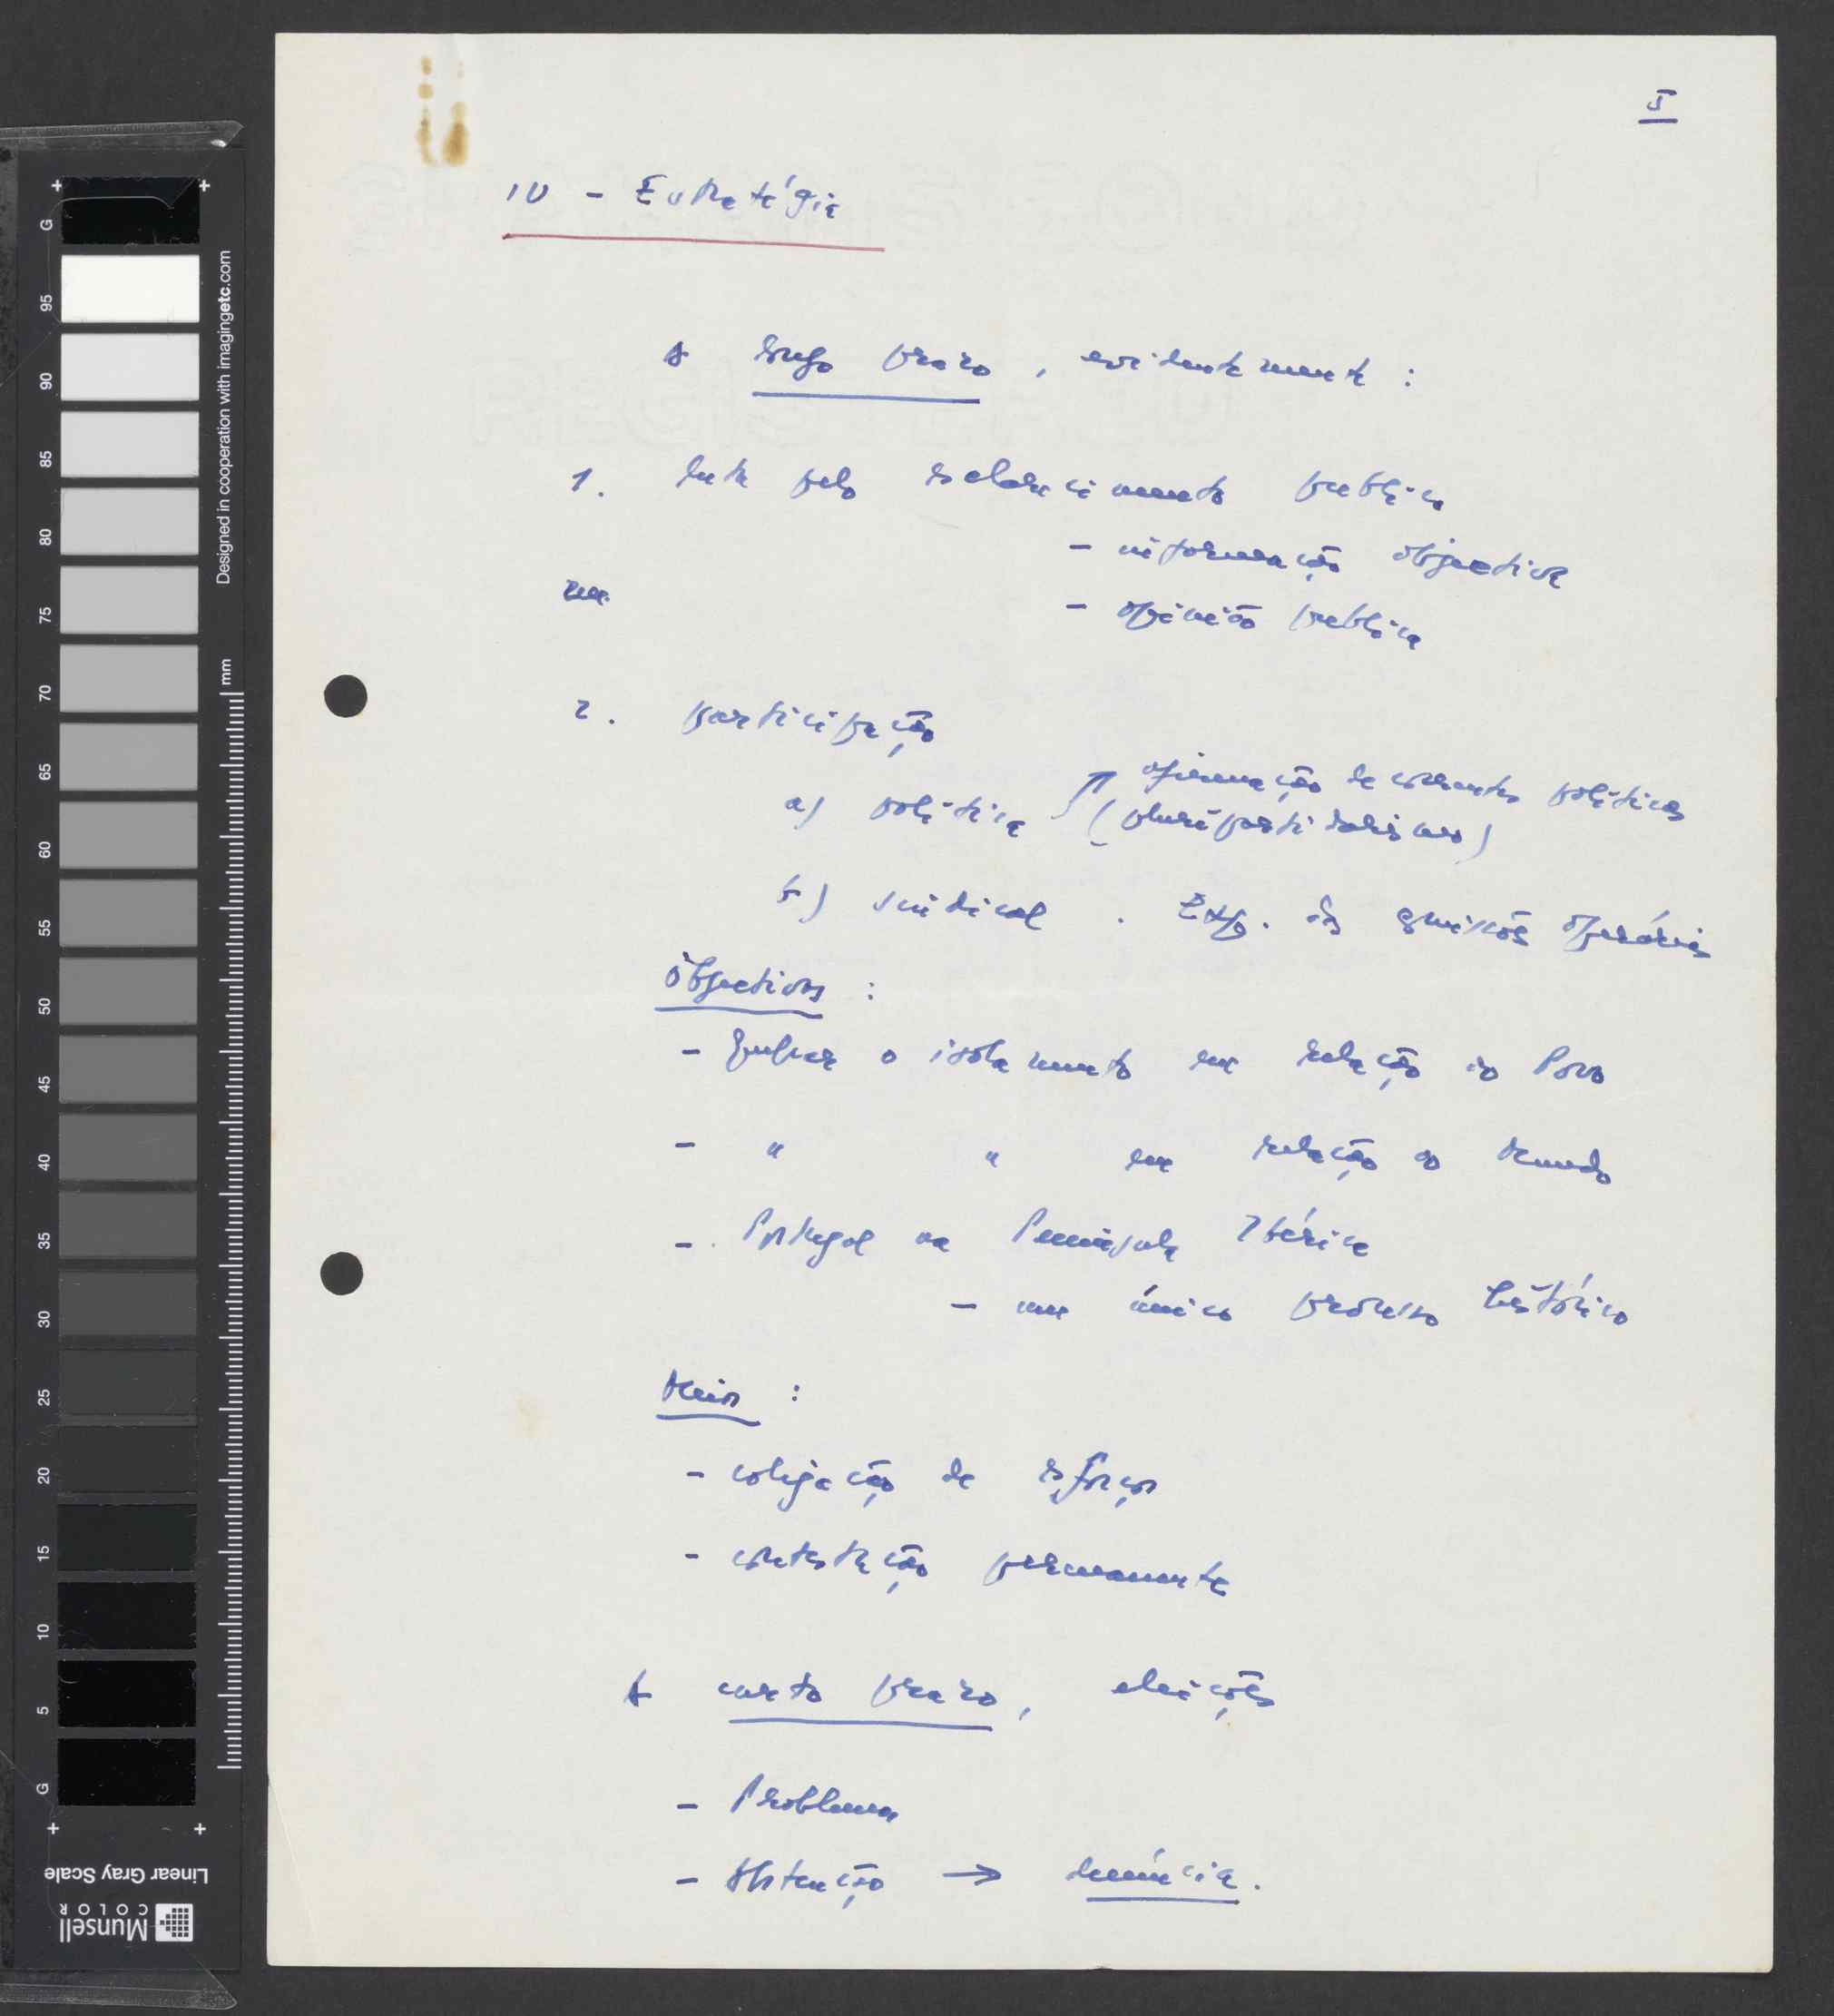 5
IV - Estratégia
A longo prazo, evidentemente :
1. Luta pelo esclarecimento público
- informação objectiva
- opinião pública
2. participação
afirmação de correntes políticas
a) política (pluripartidarismo)
b) sindical . Exp. às comissões operárias
Objectivos :
- Quebrar o isolamento em relação ao Povo
- " " em relação ao Mundo
- Portugal na Península Ibérica
- um único processo histórico
Meios :
- coligação de esforços
- contestação permanente
A curto prazo, eleições
- Problemas
- Abstenção → denúncia.
G
95
90
85
80
75
70
65
60
55
50
45
40
35
30
25
20
15
10
5
G
Designed in cooperation with imagingetc.com
mm
Linear Gray Scale
Munsell
COLOR